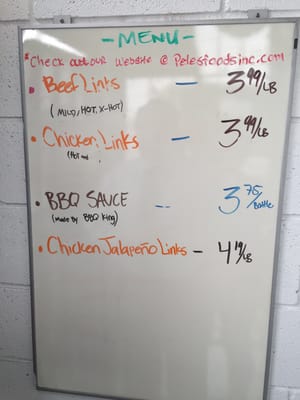 - MENU -
*Check out our website @ Pelesfoodsinc.com
• Beef Links — 3.99/LB
(MILD, HOT, X-HOT)
• Chicken Links — 3.99/LB
(Hot
• BBQ SAUCE -- 3.75/Bottle
(Made By BBQ King)
• Chicken Jalapeño Links — 4.19/LB